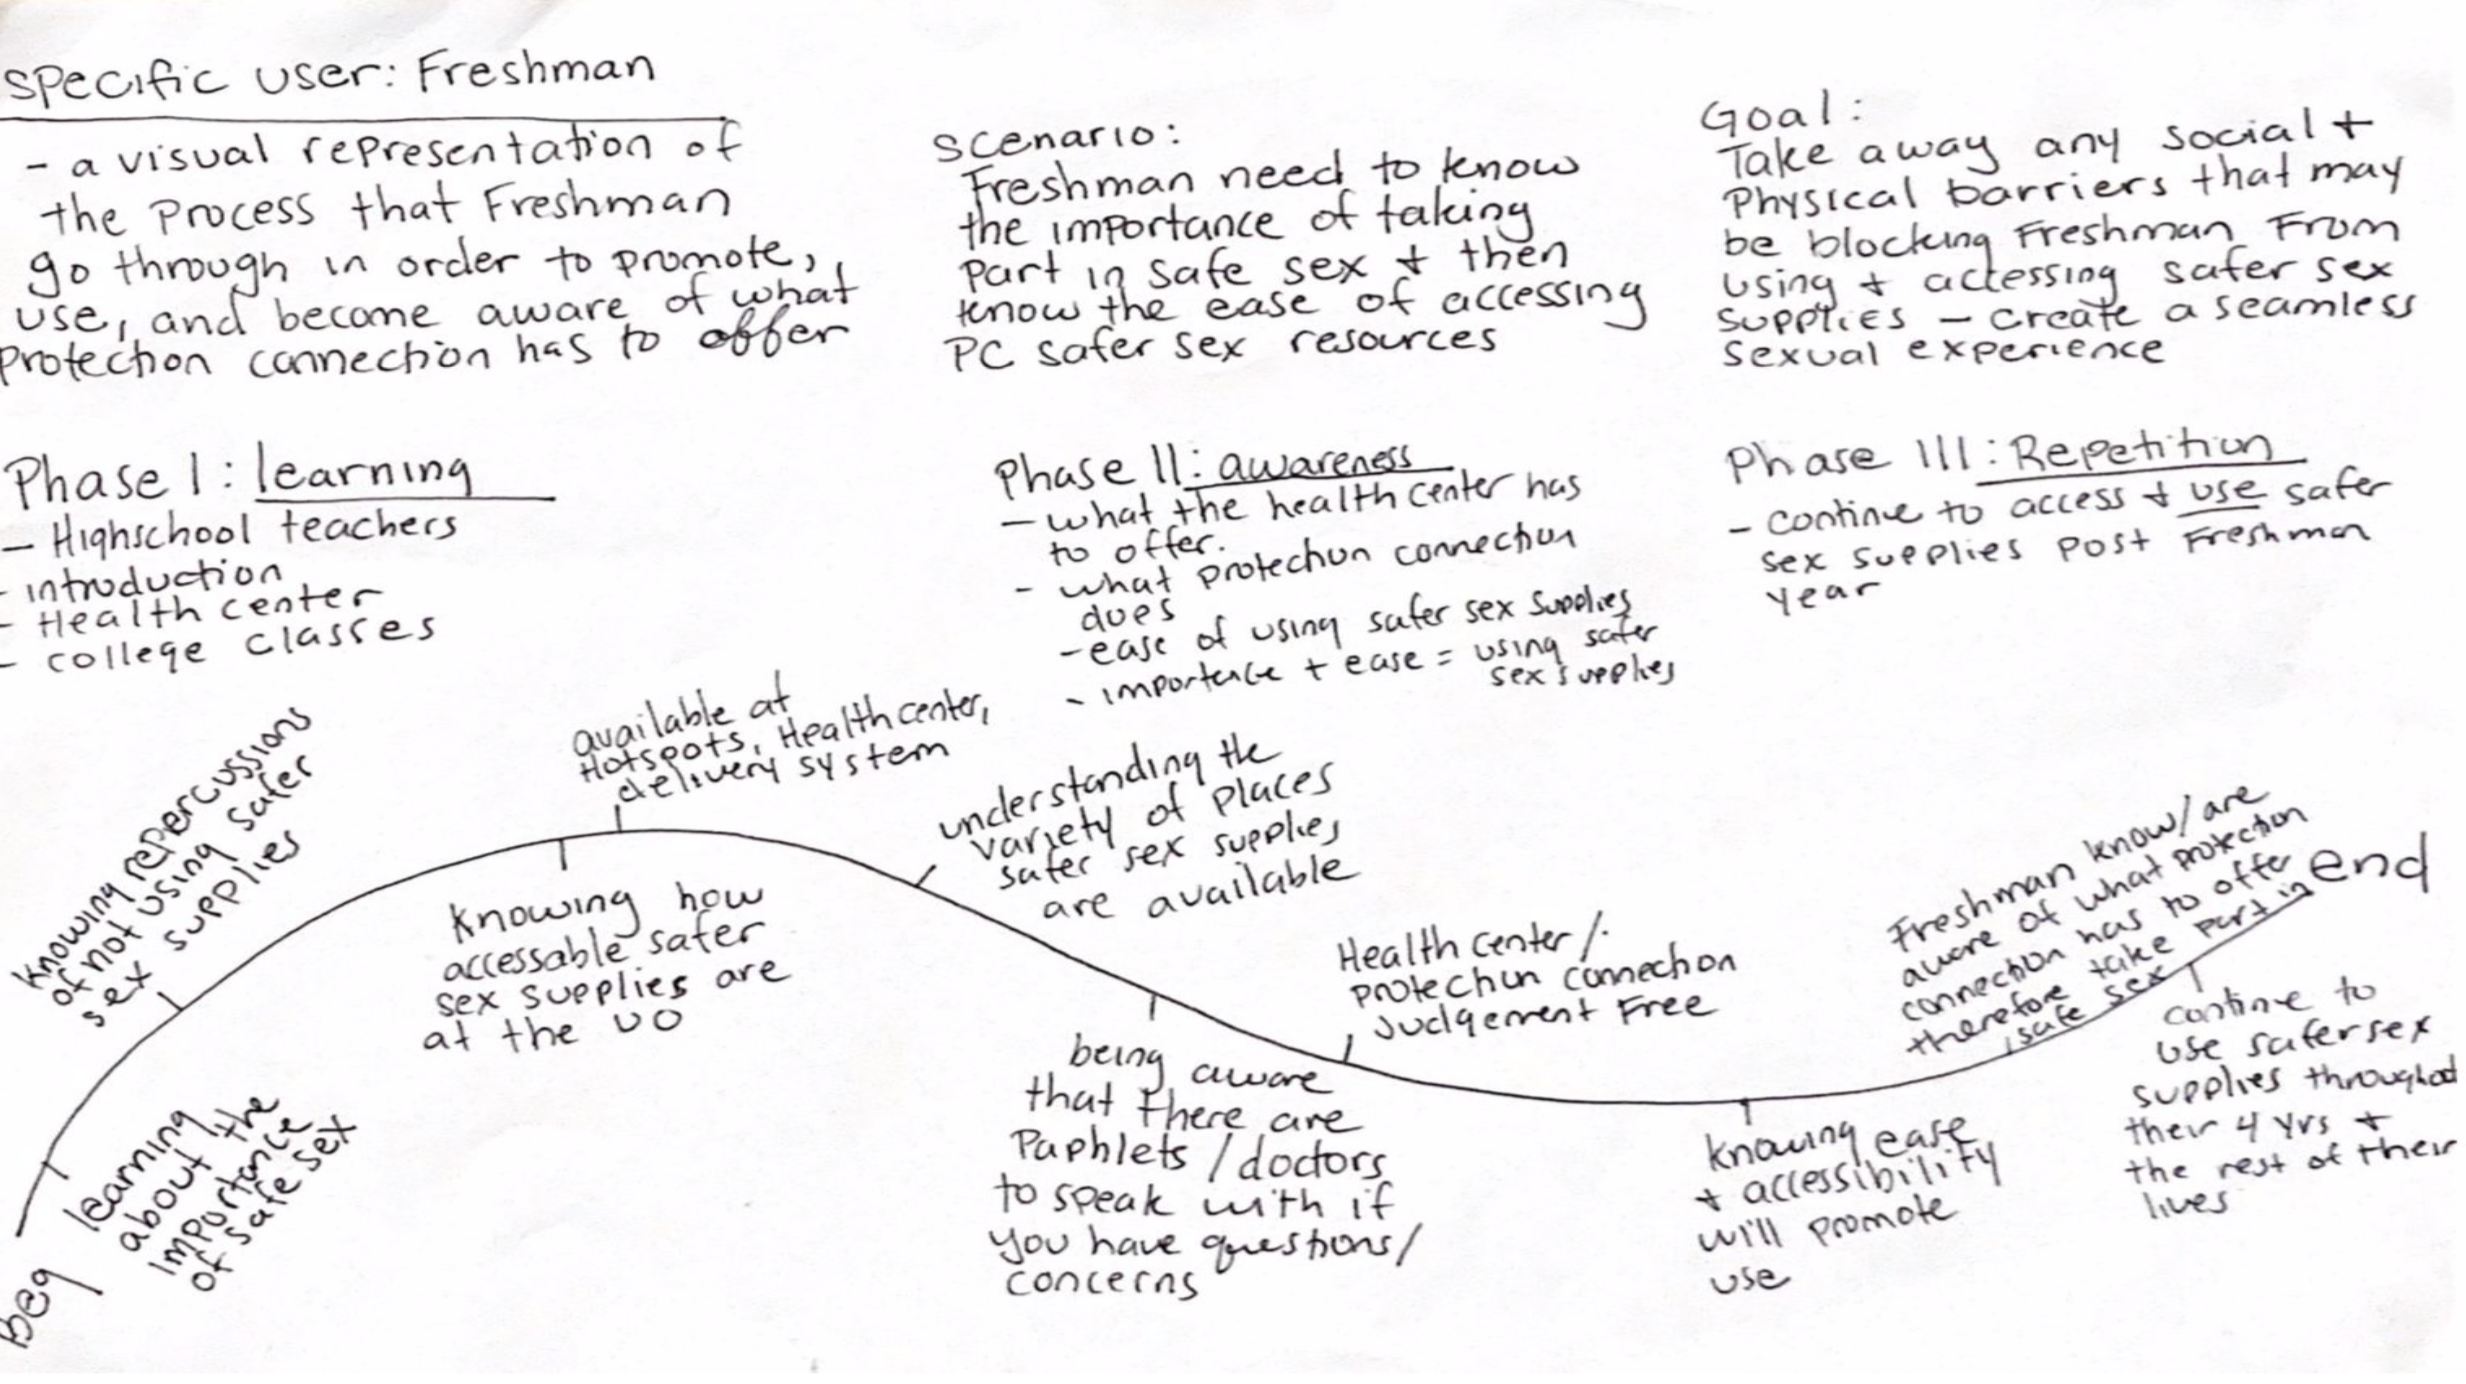 specific user: Freshman
- a visual representation of
the process that Freshman
go through in order to promote,
use, and become aware of what
protection connection has to offer
scenario:
Freshman need to know
the importance of taking
part in safe sex + then
know the ease of accessing
PC safer sex resources
Goal:
Take away any social +
Physical barriers that may
be blocking Freshman From
using + accessing safer sex
supplies - create a seamless
sexual experience
Phase I: learning
- Highschool teachers
- introduction
- Health center
- college classes
Phase II: awareness
- what the health center has
to offer.
- what protection connection
does
- ease of using safer sex supplies
- importance + ease = using safer
sex supplies
Phase III: Repetition
- continue to access + use safer
sex supplies post Freshman
year
beg
learning
about the
importance
of safe sex
knowing repercussions
of not using safer
sex supplies
Knowing how
accessable safer
sex supplies are
at the UO
available at
Hotspots, Health center,
delivery system
understanding the
variety of places
safer sex supplies
are available
being aware
that there are
Paphlets / doctors
to speak with if
you have questions/
concerns
Health center /
protection connection
Judgement Free
knowing ease
+ accessibility
will promote
use
Freshman know/are
aware of what protection
connection has to offer
therefore take part in
safe sex
continue to
use safer sex
supplies throughout
their 4 yrs +
the rest of their
lives
end